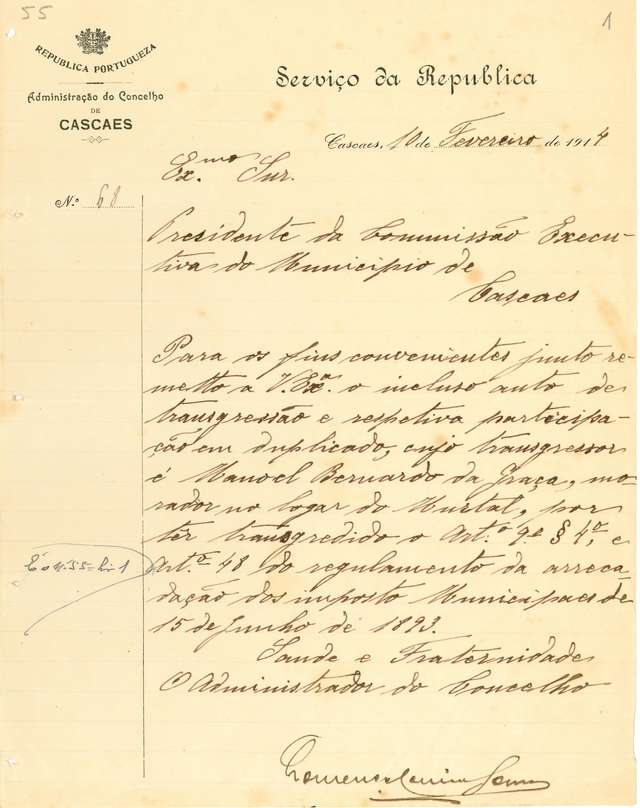 55
1
REPUBLICA PORTUGUEZA
Administração do Concelho
DE
CASCAES
Serviço da Republica
Cascaes, 10 de Fevereiro de 1914
Exmo Snr.
N.º 68
Presidente da Commissão Execu-
tiva do Municipio de
Cascaes
Para os fins convenientes junto re-
metto a V. Exª. o incluso auto de
transgressão e respetiva participa-
ção em duplicado, cujo transgressor
é Manoel Bernardo da Graça, mo-
rador no logar do Murtal, por
ter transgredido o Art.º 9.º § 4º, e
Art.º 48 do regulamento da arreca-
dação dos imposto Municipaes de
15 de Junho de 1893.
Saude e Fraternidade
O Administrador do Concelho